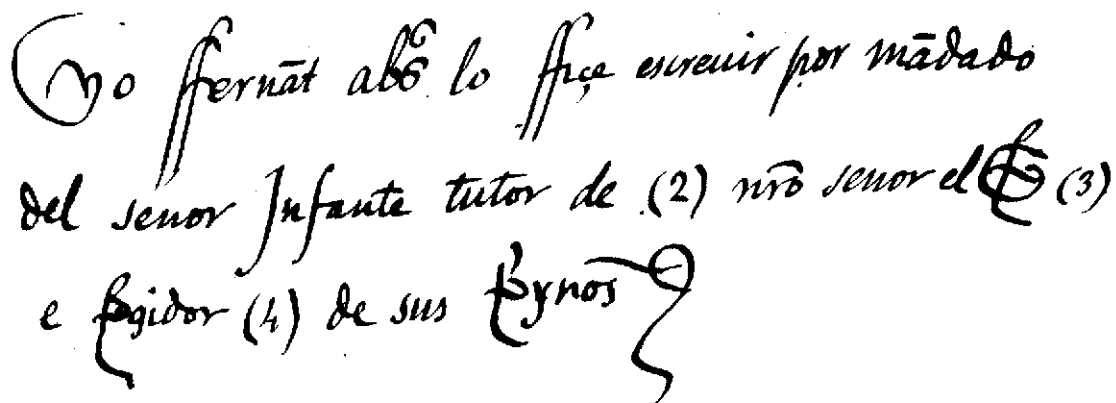 yo ffernāt alſs lo ffiçe escreuir por mādado
del senor Jnfante tutor de (2) nr̄o senor el (3)
e Regidor (4) de sus Reynos